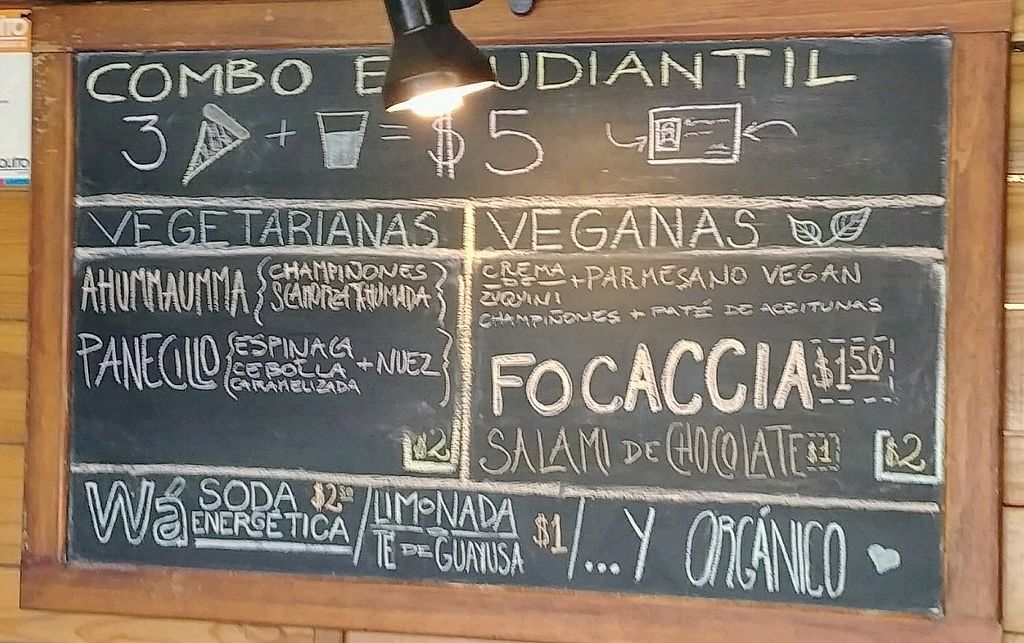 COMBO E UDIANTIL
3 + = $5
VEGETARIANAS
AHUMMAUMMA { CHAMPIÑONES
SCAMORZA AHUMADA }
PANECILLO { ESPINACA
CEBOLLA
CARAMELIZADA + NUEZ }
$2
VEGANAS
CREMA
DE
ZUQYINI + PARMESANO VEGAN
CHAMPIÑONES + PATÉ DE ACEITUNAS
FOCACCIA $1.50
SALAMI DE CHOCOLATE $1
$2
Wá SODA $2.50
ENERGÉTICA /
LIMONADA
TÉ DE GUAYUSA $1 /
...Y ORGÁNICO